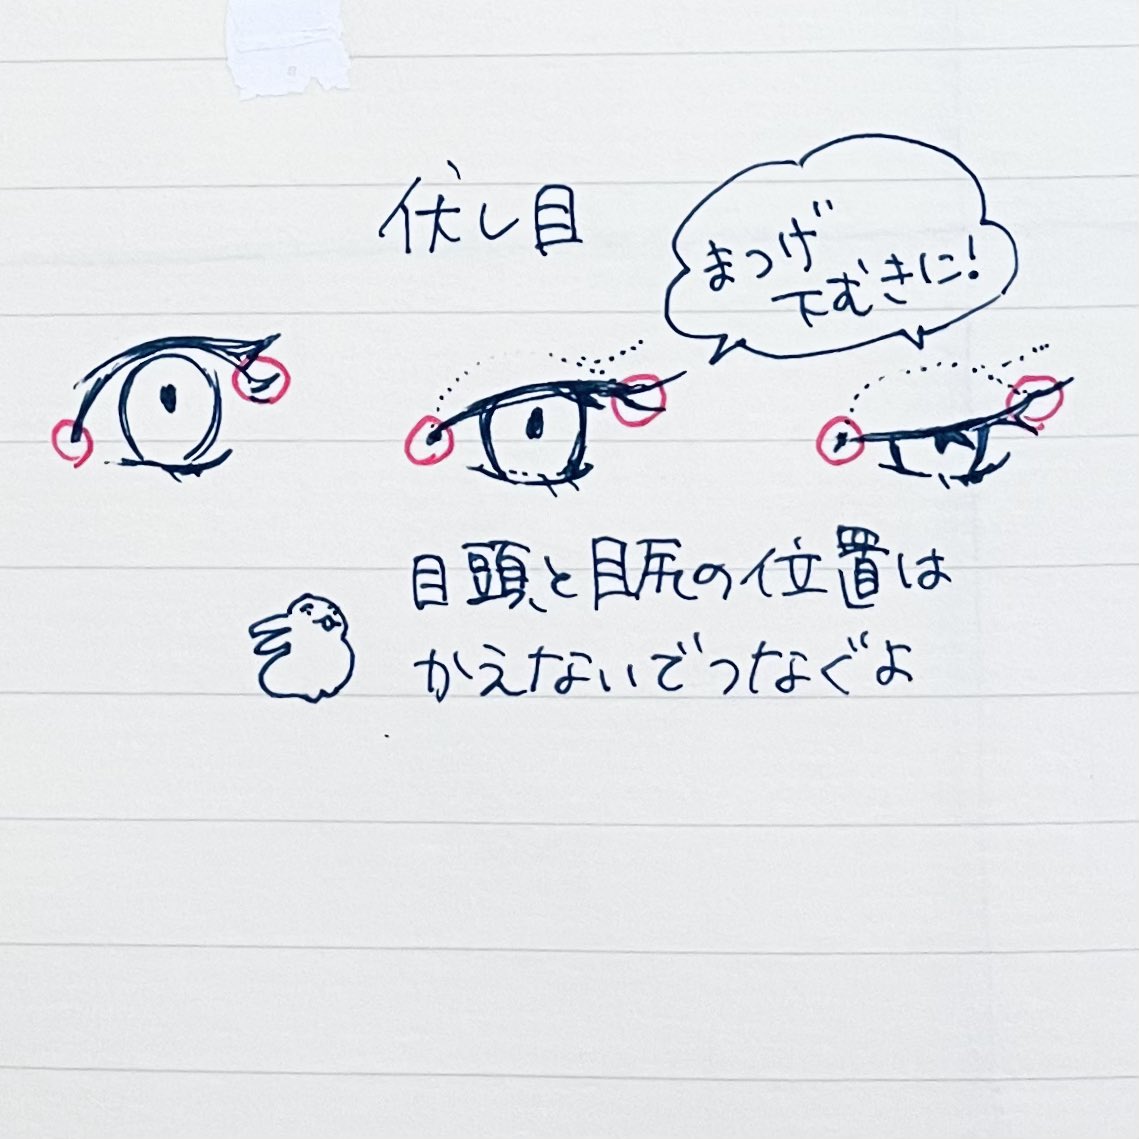 伏し目
まつげ
下むきに!
目頭と目尻の位置は
かえないでつなぐよ